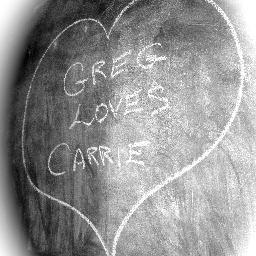 GREG
LOVES
CARRIE